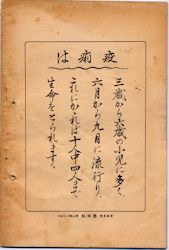 疫痢は
三歳から六歳の小児に多く、
六月から九月に流行り、
これにかゝれば十人中四人まで
生命をとられます。